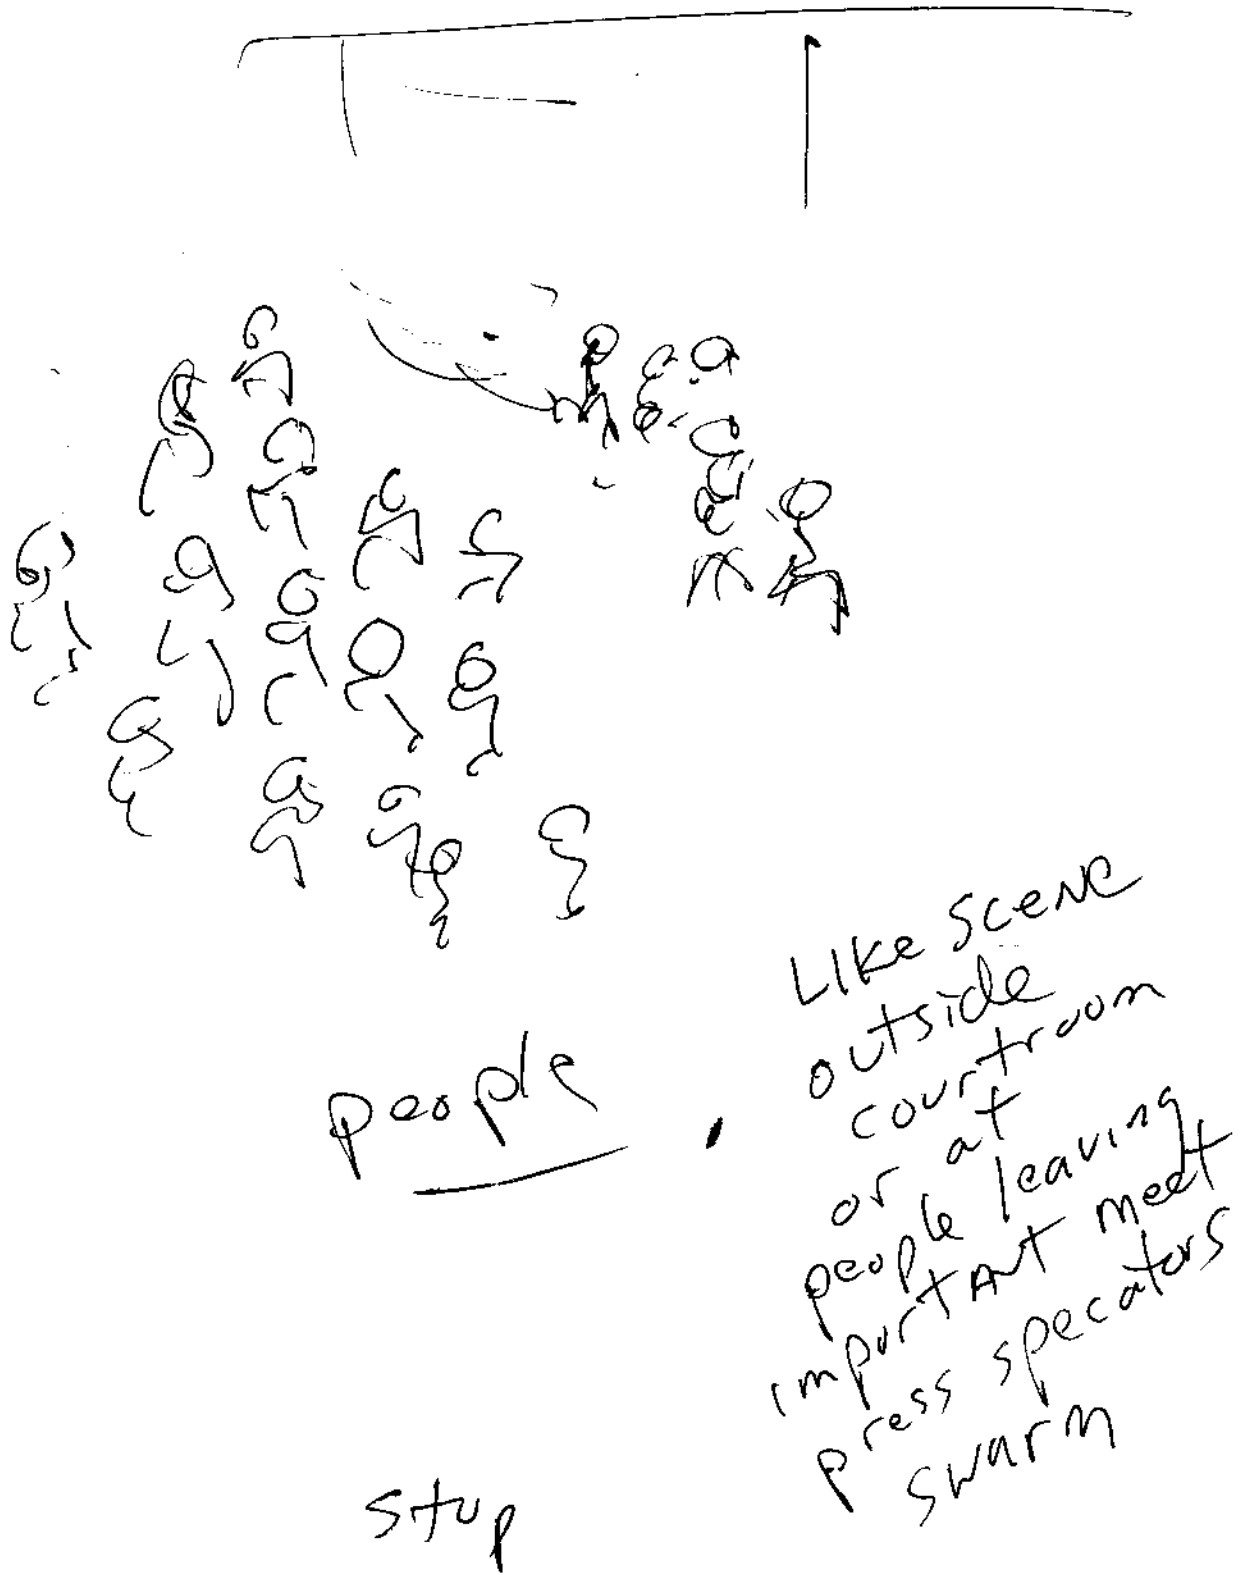 people
Like scene
outside
courtroom
or at
people leaving
important meet
press specators
swarm
stop